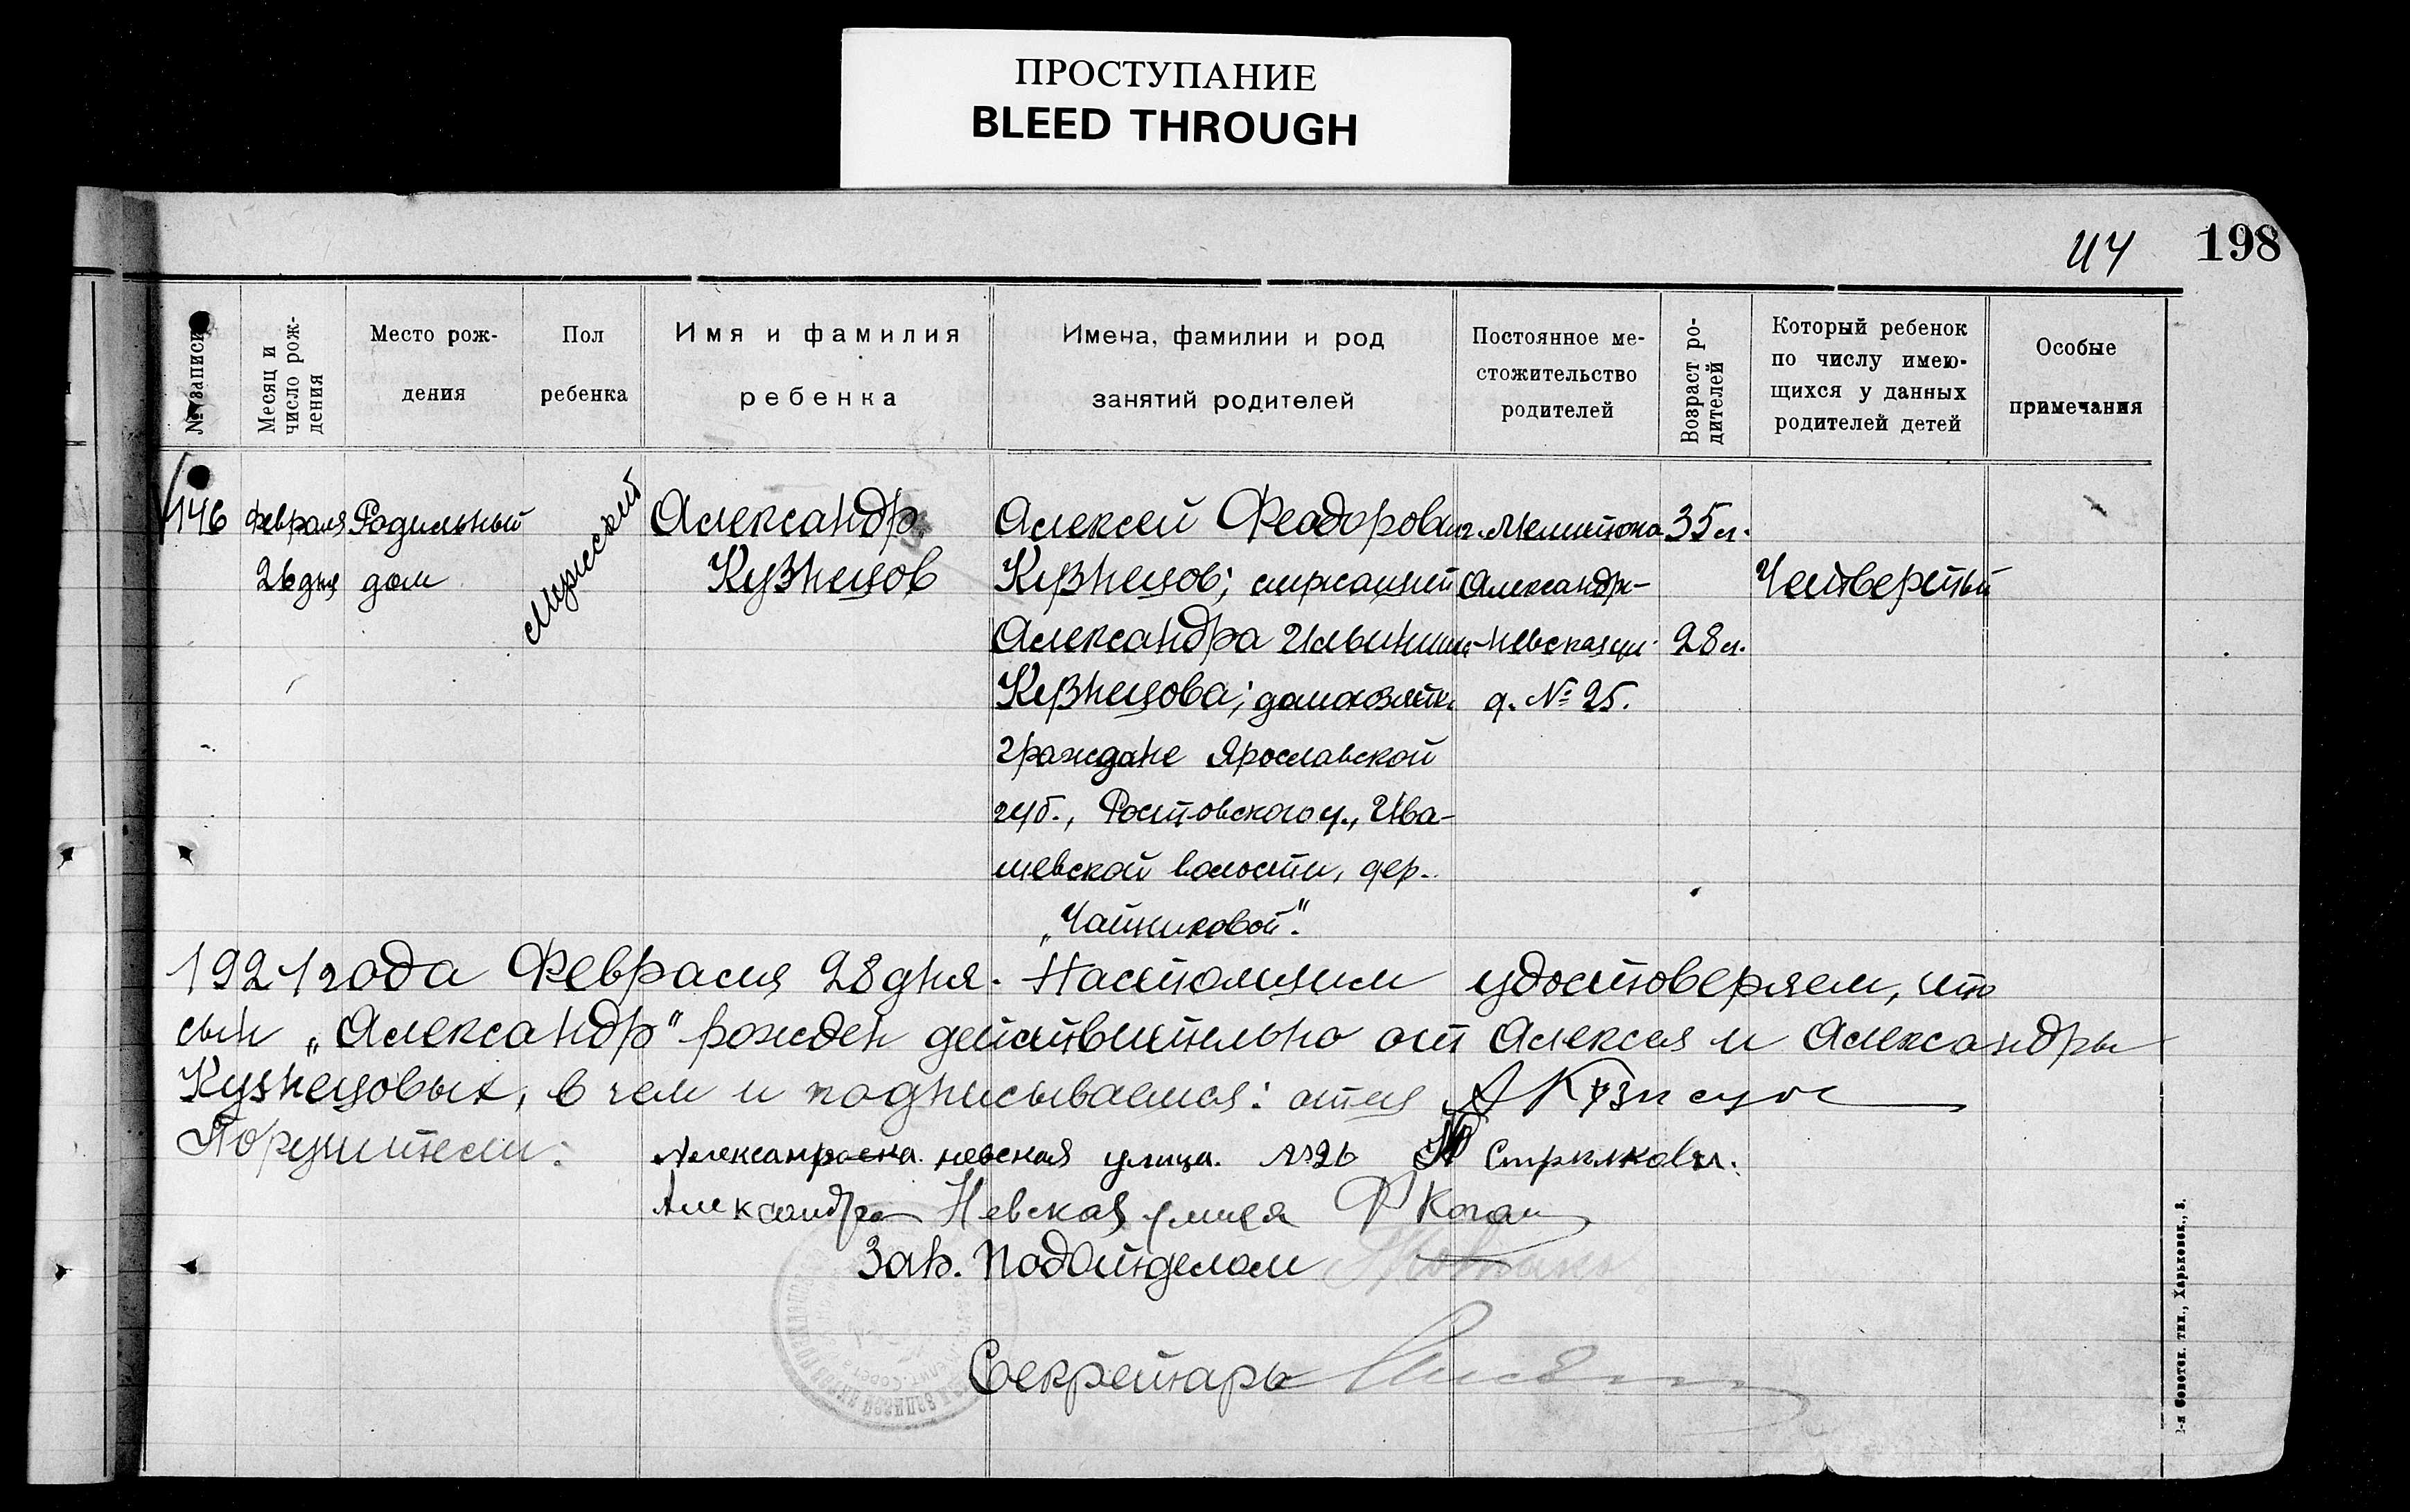 ПРОСТУПАНИЕ
BLEED THROUGH
114 198
№ записи
Месяц и число рож-дения
Место рож-
дения
Пол
ребенка
Имя и фамилия
ребенка
Имена, фамилии и род
занятий родителей
Постоянное ме-
стожительство
родителей
Возраст ро-
дителей
Который ребенок
по числу имею-
щихся у данных
родителей детей
Особые
примечания
146 Февраля Родильный Мужской Александр Алексей Феодорович г. Мелитополь 35 л.
26 дня дом Кузнецов Кузнецов; служащий Александр- Четвертый
Александра Ильинична -Невская ул. 28 л.
Кузнецова; домохозяйка д. № 25.
граждане Ярославской
губ., Ростовского у., Ива-
шевской волости, дер.
„Чайниковой".
1921 года Февраля 28 дня. Настоящим удостоверяем, что
сын „Александр" рожден действительно от Алексея и Александры
Кузнецовых, в чем и подписываемся: отец А Кузнецов
Поручители: невская улица. №26
Александра Невская улица Р Коган
Зав. Подотделом
Секретарь
2-я Советск. тип., Харьковск., 8.